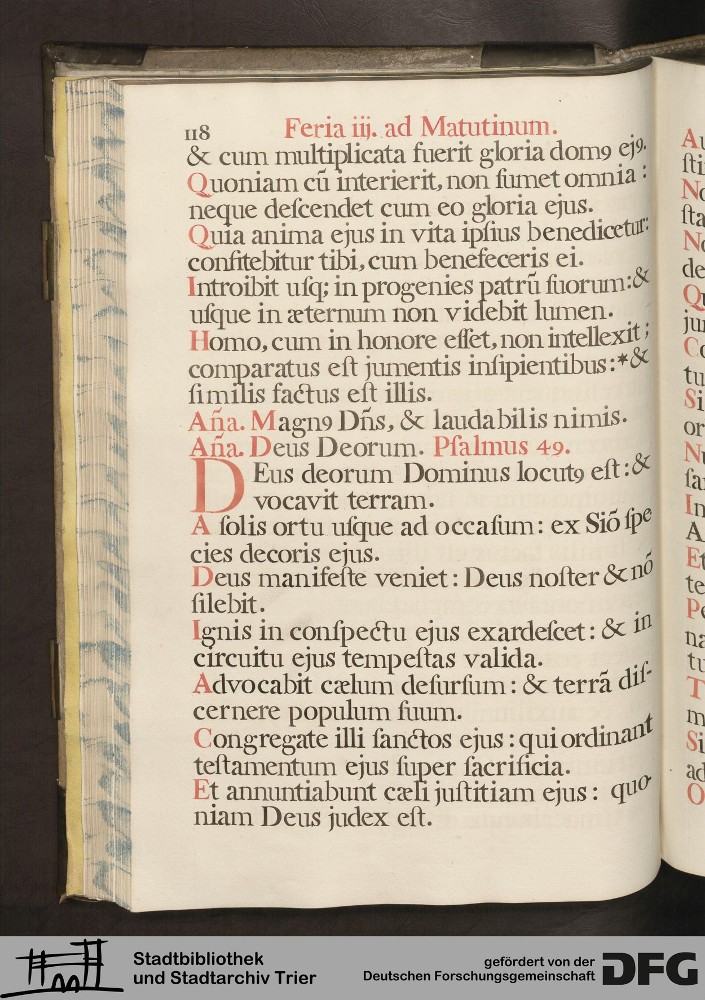 118 Feria iij. ad Matutinum.
& cum multiplicata fuerit gloria domꝯ ejꝯ.
Quoniam cũ interierit, non ſumet omnia :
neque deſcendet cum eo gloria ejus.
Quia anima ejus in vita ipſius benedicetur:
confitebitur tibi, cum benefeceris ei.
Introibit uſq; in progenies patrũ ſuorum: &
uſque in æternum non videbit lumen.
Homo, cum in honore eſſet, non intellexit ;
comparatus eſt jumentis inſipientibus: * &
ſimilis factus eſt illis.
Aña. Magnꝯ Dñs, & laudabilis nimis.
Aña. Deus Deorum. Pſalmus 49.
DEus deorum Dominus locutꝯ eſt : &
vocavit terram.
A ſolis ortu uſque ad occaſum : ex Siõ ſpe
cies decoris ejus.
Deus manifeſte veniet : Deus noſter & nõ
ſilebit.
Ignis in conſpectu ejus exardeſcet : & in
circuitu ejus tempeſtas valida.
Advocabit cælum deſurſum : & terrã diſ-
cernere populum ſuum.
Congregate illi ſanctos ejus : qui ordinant
teſtamentum ejus ſuper ſacrificia.
Et annuntiabunt cæli juſtitiam ejus : quo-
niam Deus judex eſt.
Stadtbibliothek
und Stadtarchiv Trier
gefördert von der
Deutschen Forschungsgemeinschaft
DFG